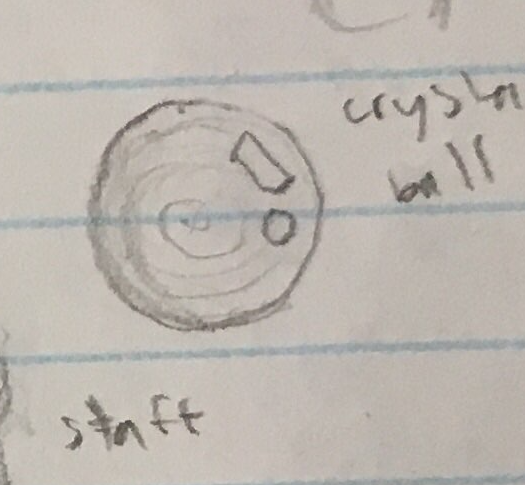 crysta
ball
staff